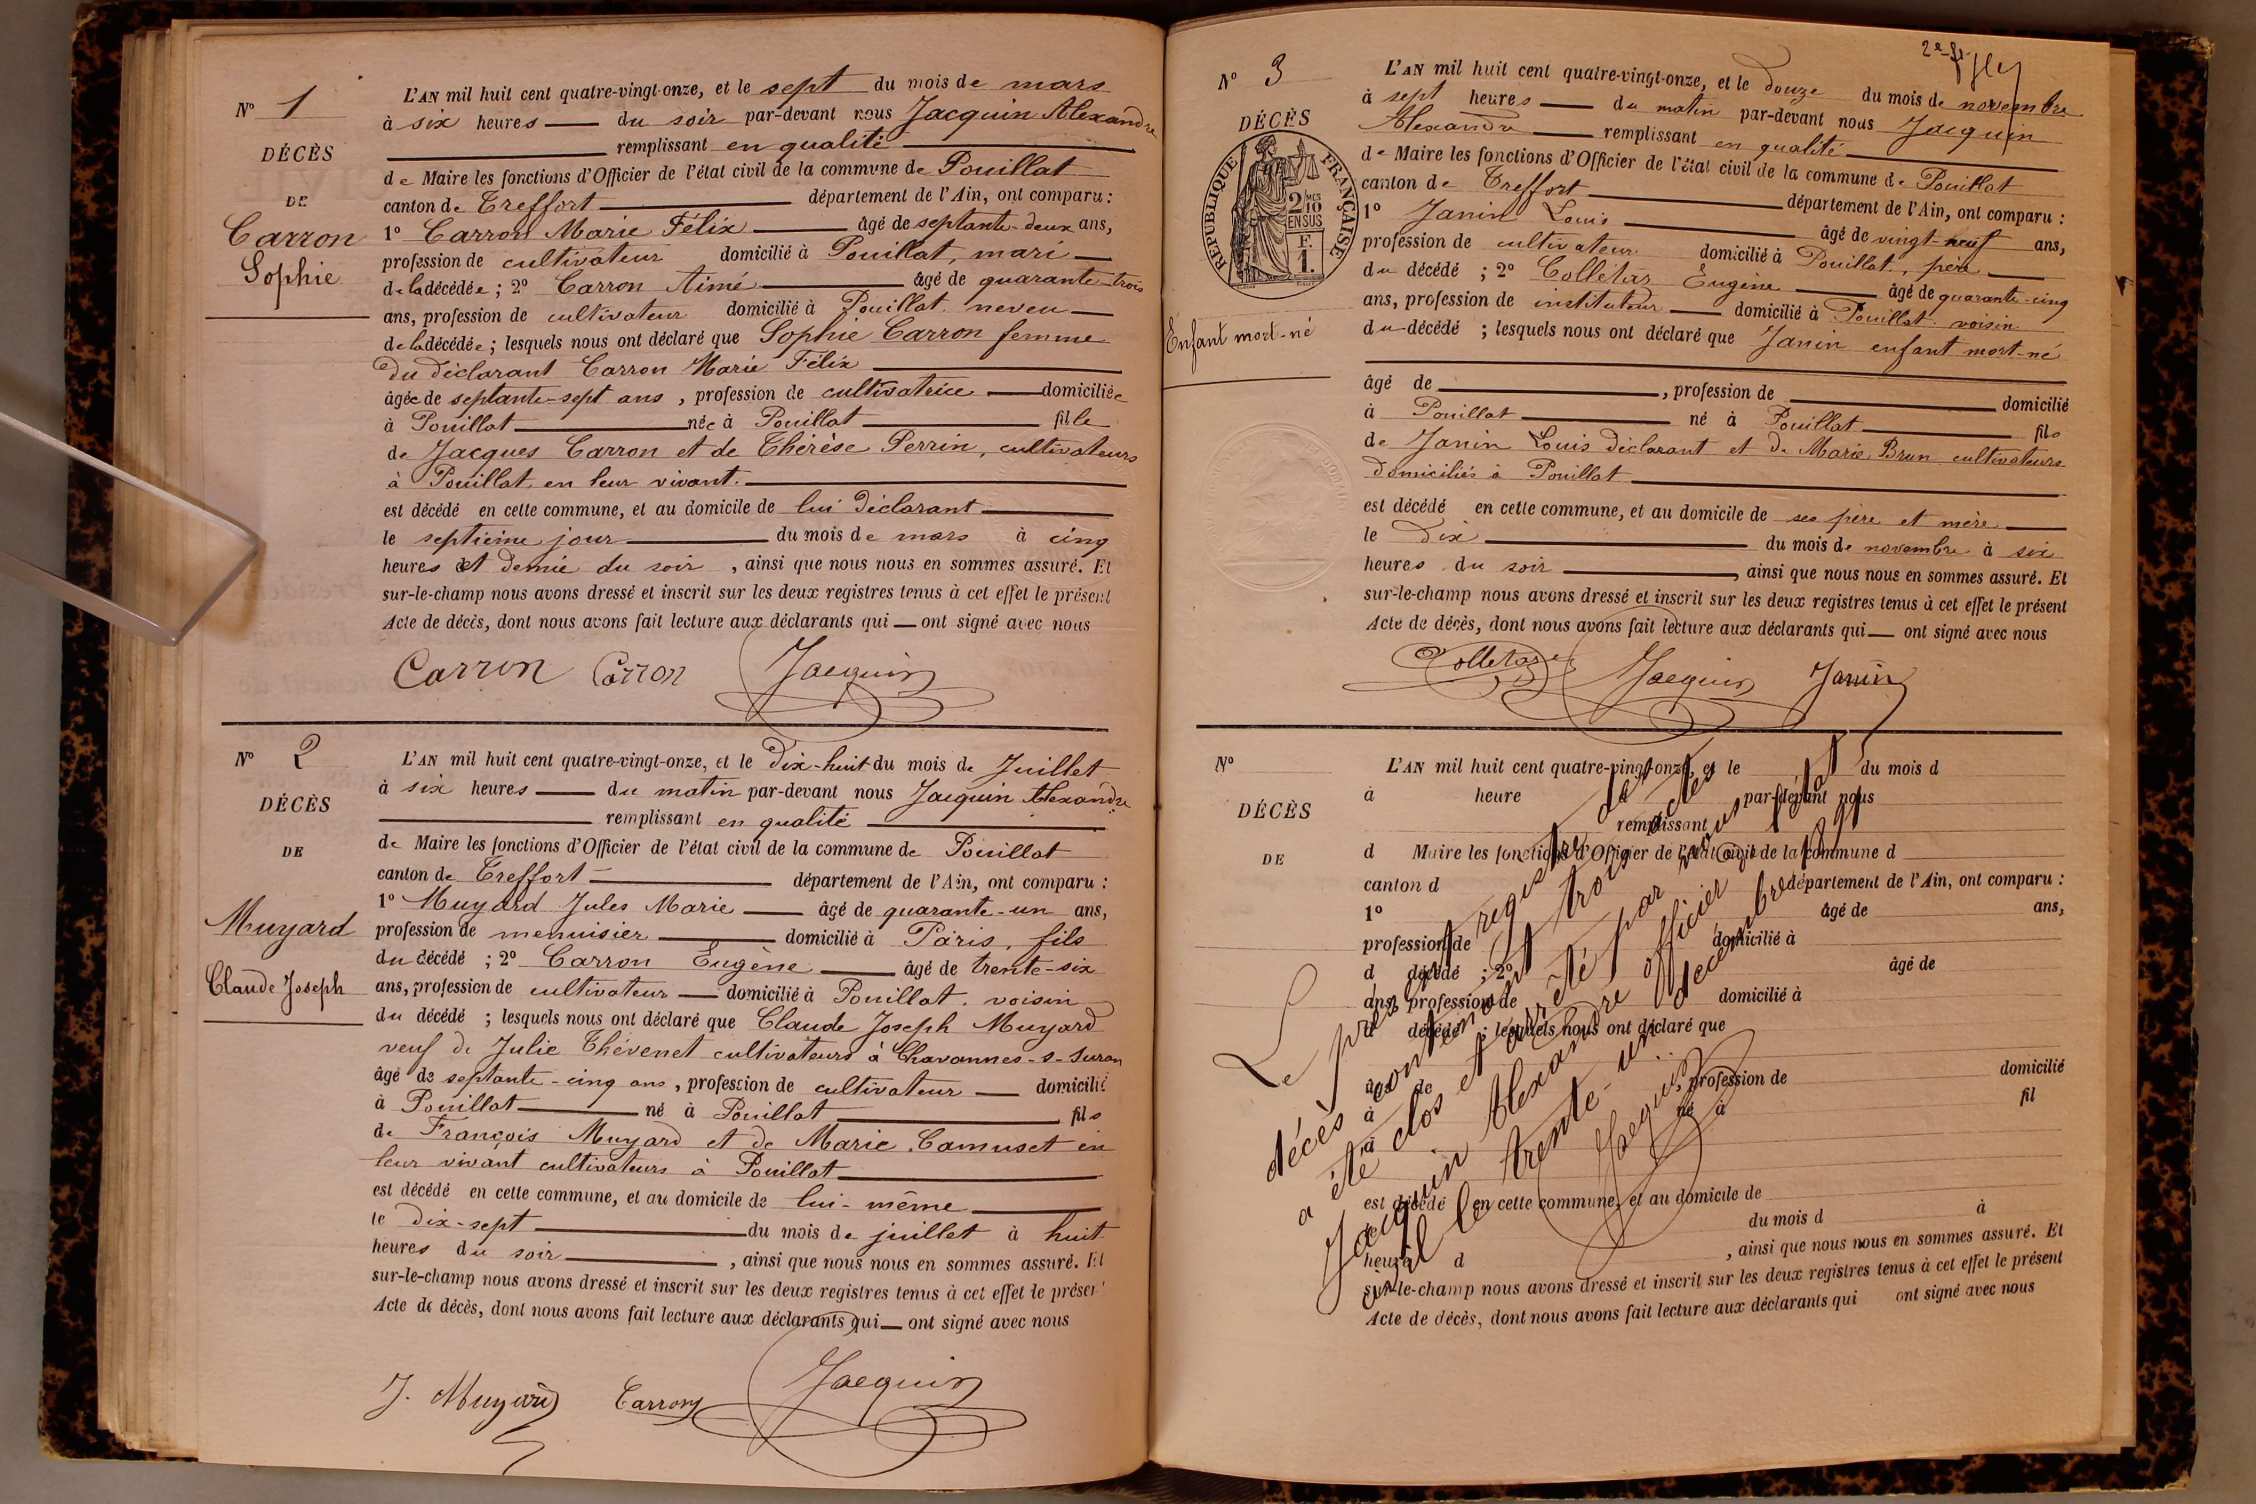 N° 1
DÉCÈS
DE
Carron
Sophie
L'AN mil huit cent quatre-vingt-onze, et le sept du mois de mars
à six heures du soir par-devant nous Jacquin Alexandre
remplissant en qualité
de Maire les fonctions d'Officier de l'état civil de la commune de Pouillat
canton de Treffort département de l'Ain, ont comparu :
1° Carron Marie Félix âgé de septante-deux ans,
profession de cultivateur domicilié à Pouillat, mari
de la décédée ; 2° Carron Aimé âgé de quarante-trois
ans, profession de cultivateur domicilié à Pouillat. neveu
de la décédée ; lesquels nous ont déclaré que Sophie Carron femme
du déclarant Carron Marie Félix
âgée de septante-sept ans, profession de cultivatrice domiciliée
à Pouillat née à Pouillat fille
de Jacques Carron et de Thérèse Perrin, cultivateurs
à Pouillat en leur vivant.
est décédé en cette commune, et au domicile de lui déclarant
le septième jour du mois de mars à cinq
heures et demie du soir, ainsi que nous nous en sommes assuré. Et
sur-le-champ nous avons dressé et inscrit sur les deux registres tenus à cet effet le présent
Acte de décès, dont nous avons fait lecture aux déclarants qui ont signé avec nous
Carron Carron Jacquin
N° 2
DÉCÈS
DE
Muyard
Claude Joseph
L'AN mil huit cent quatre-vingt-onze, et le dix-huit du mois de Juillet
à six heures du matin par-devant nous Jacquin Alexandre
remplissant en qualité
de Maire les fonctions d'Officier de l'état civil de la commune de Pouillat
canton de Treffort département de l'Ain, ont comparu :
1° Muyard Jules Marie âgé de quarante-un ans,
profession de menuisier domicilié à Paris, fils
du décédé ; 2° Carron Eugène âgé de trente-six
ans, profession de cultivateur domicilié à Pouillat. voisin
du décédé ; lesquels nous ont déclaré que Claude Joseph Muyard
veuf de Julie Thévenet cultivateurs à Chavannes-s-Suran
âgé de septante-cinq ans, profession de cultivateur domicilié
à Pouillat né à Pouillat fils
de François Muyard et de Marie Camuset en
leur vivant cultivateurs à Pouillat
est décédé en cette commune, et au domicile de lui-même
le dix-sept du mois de juillet à huit
heures du soir, ainsi que nous nous en sommes assuré. Et
sur-le-champ nous avons dressé et inscrit sur les deux registres tenus à cet effet le présent
Acte de décès, dont nous avons fait lecture aux déclarants qui ont signé avec nous
J. Muyard Carron Jacquin
N° 3
DÉCÈS
RÉPUBLIQUE FRANÇAISE
2/10 EN SUS
F. 1.
Enfant mort-né
L'AN mil huit cent quatre-vingt-onze, et le douze du mois de novembre
à sept heures du matin par-devant nous Jacquin
Alexandre remplissant en qualité
de Maire les fonctions d'Officier de l'état civil de la commune de Pouillat
canton de Treffort département de l'Ain, ont comparu :
1° Janin Louis âgé de vingt-neuf ans,
profession de cultivateur domicilié à Pouillat, père
du décédé ; 2° Colletas Eugène âgé de quarante-cinq
ans, profession de instituteur domicilié à Pouillat. voisin
du décédé ; lesquels nous ont déclaré que Janin enfant mort-né
âgé de , profession de domicilié
à Pouillat né à Pouillat fils
de Janin Louis déclarant et de Marie Brun cultivateurs
domiciliés à Pouillat
est décédé en cette commune, et au domicile de ses père et mère
le dix du mois de novembre à six
heures du soir, ainsi que nous nous en sommes assuré. Et
sur-le-champ nous avons dressé et inscrit sur les deux registres tenus à cet effet le présent
Acte de décès, dont nous avons fait lecture aux déclarants qui ont signé avec nous
Colletas Jacquin Janin
N°
DÉCÈS
DE
L'AN mil huit cent quatre-vingt-onze, et le du mois d
à heure par-devant nous
remplissant
d Maire les fonctions d'Officier de l'état civil de la commune d
canton d département de l'Ain, ont comparu :
1° âgé de ans,
profession de domicilié à
d décédé ; 2° âgé de
ans, profession de domicilié à
d décédé ; lesquels nous ont déclaré que
âgé de , profession de domicilié
à né à fil
d
est décédé en cette commune, et au domicile de
le du mois d à
heure d , ainsi que nous nous en sommes assuré. Et
sur-le-champ nous avons dressé et inscrit sur les deux registres tenus à cet effet le présent
Acte de décès, dont nous avons fait lecture aux déclarants qui ont signé avec nous
Le présent registre des
décès contenant trois actes
a été clos et arrêté par nous
Jacquin Alexandre officier de l'état
civil le trente-un décembre 1891
Jacquin